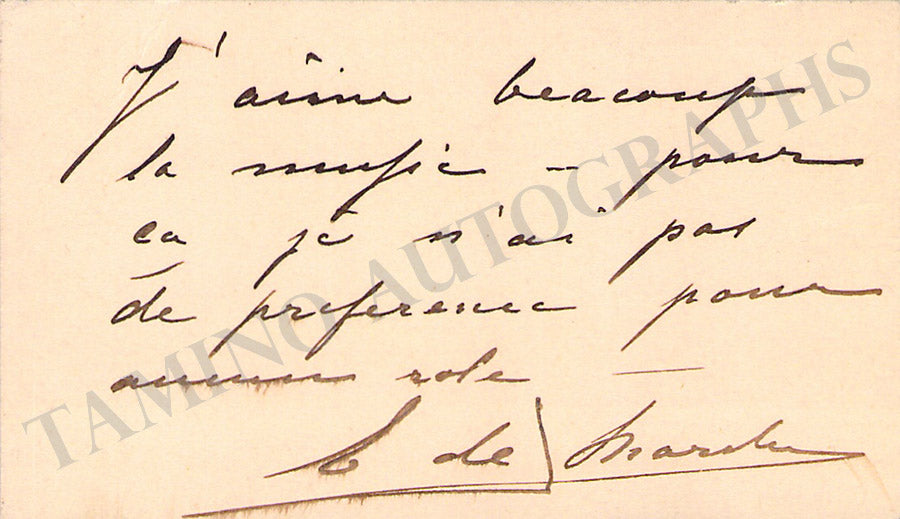 J'aime beacoup
la music - pour
ca je n'ai pas
de preference pour
aucun role —
E de Marchi
TAMINO AUTOGRAPHS